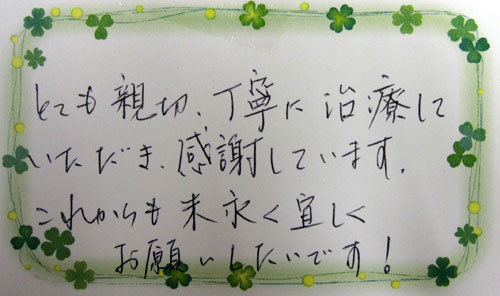 とても親切、丁寧に治療して
いただき、感謝しています。
これからも末永く宜しく
お願いしたいです!